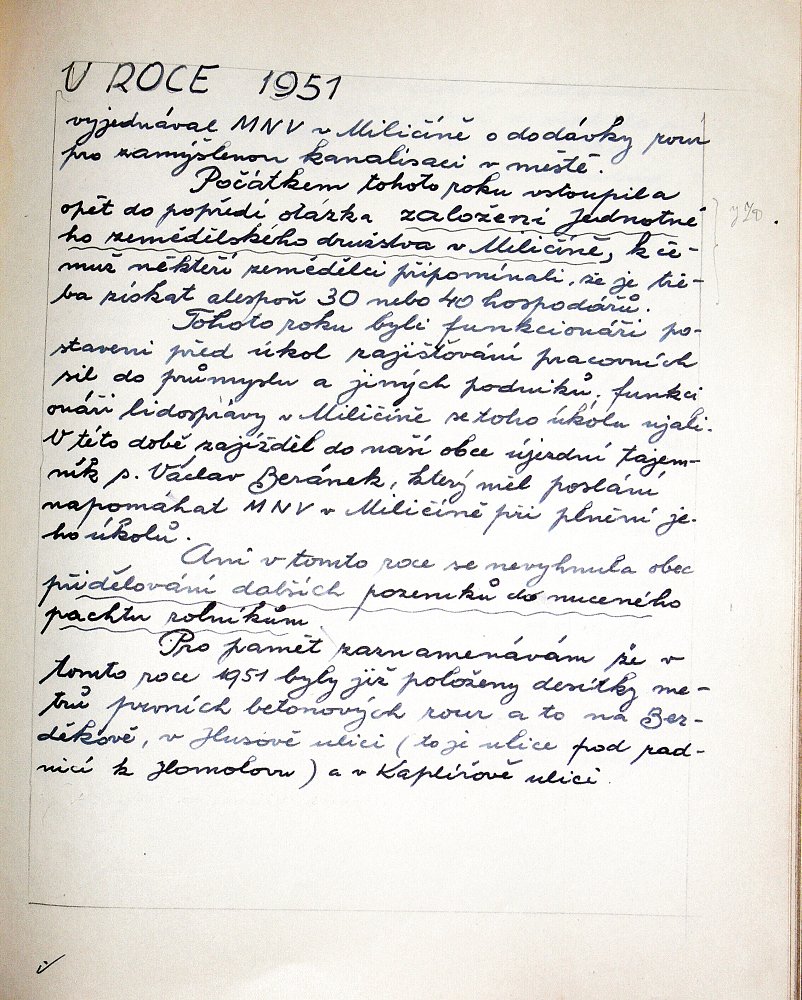 V ROCE 1951
vyjednával MNV v Miličíně o dodávky rour
pro zamýšlenou kanalisaci v městě.
Počátkem tohoto roku vstoupila
opět do popředí otázka založení Jednotné
ho zemědělského družstva v Miličíně, k če-
muž někteří zemědělci připomínali, že je tře-
ba získat alespoň 30 nebo 40 hospodářů.
Tohoto roku byli funkcionáři po-
staveni před úkol zajišťování pracovních
sil do průmyslu a jiných podniků, funkci
onáři lidosprávy v Miličíně se toho úkolu ujali.
V této době zajížděl do naší obce újezdní tajem-
ník s. Václav Beránek, který měl poslání
napomáhat MNV v Miličíně při plnění je-
ho úkolů.
Ani v tomto roce se nevyhnula obec
přidělování dalších pozemků do nuceného
pachtu rolníkům.
Pro pamět zaznamenávám že v
tomto roce 1951 byly již položeny desítky me-
trů prvních betonových rour a to na Ber-
děkově, v Husově ulici (to je ulice pod rad-
nicí k Homolovu) a v Kaplířově ulici.